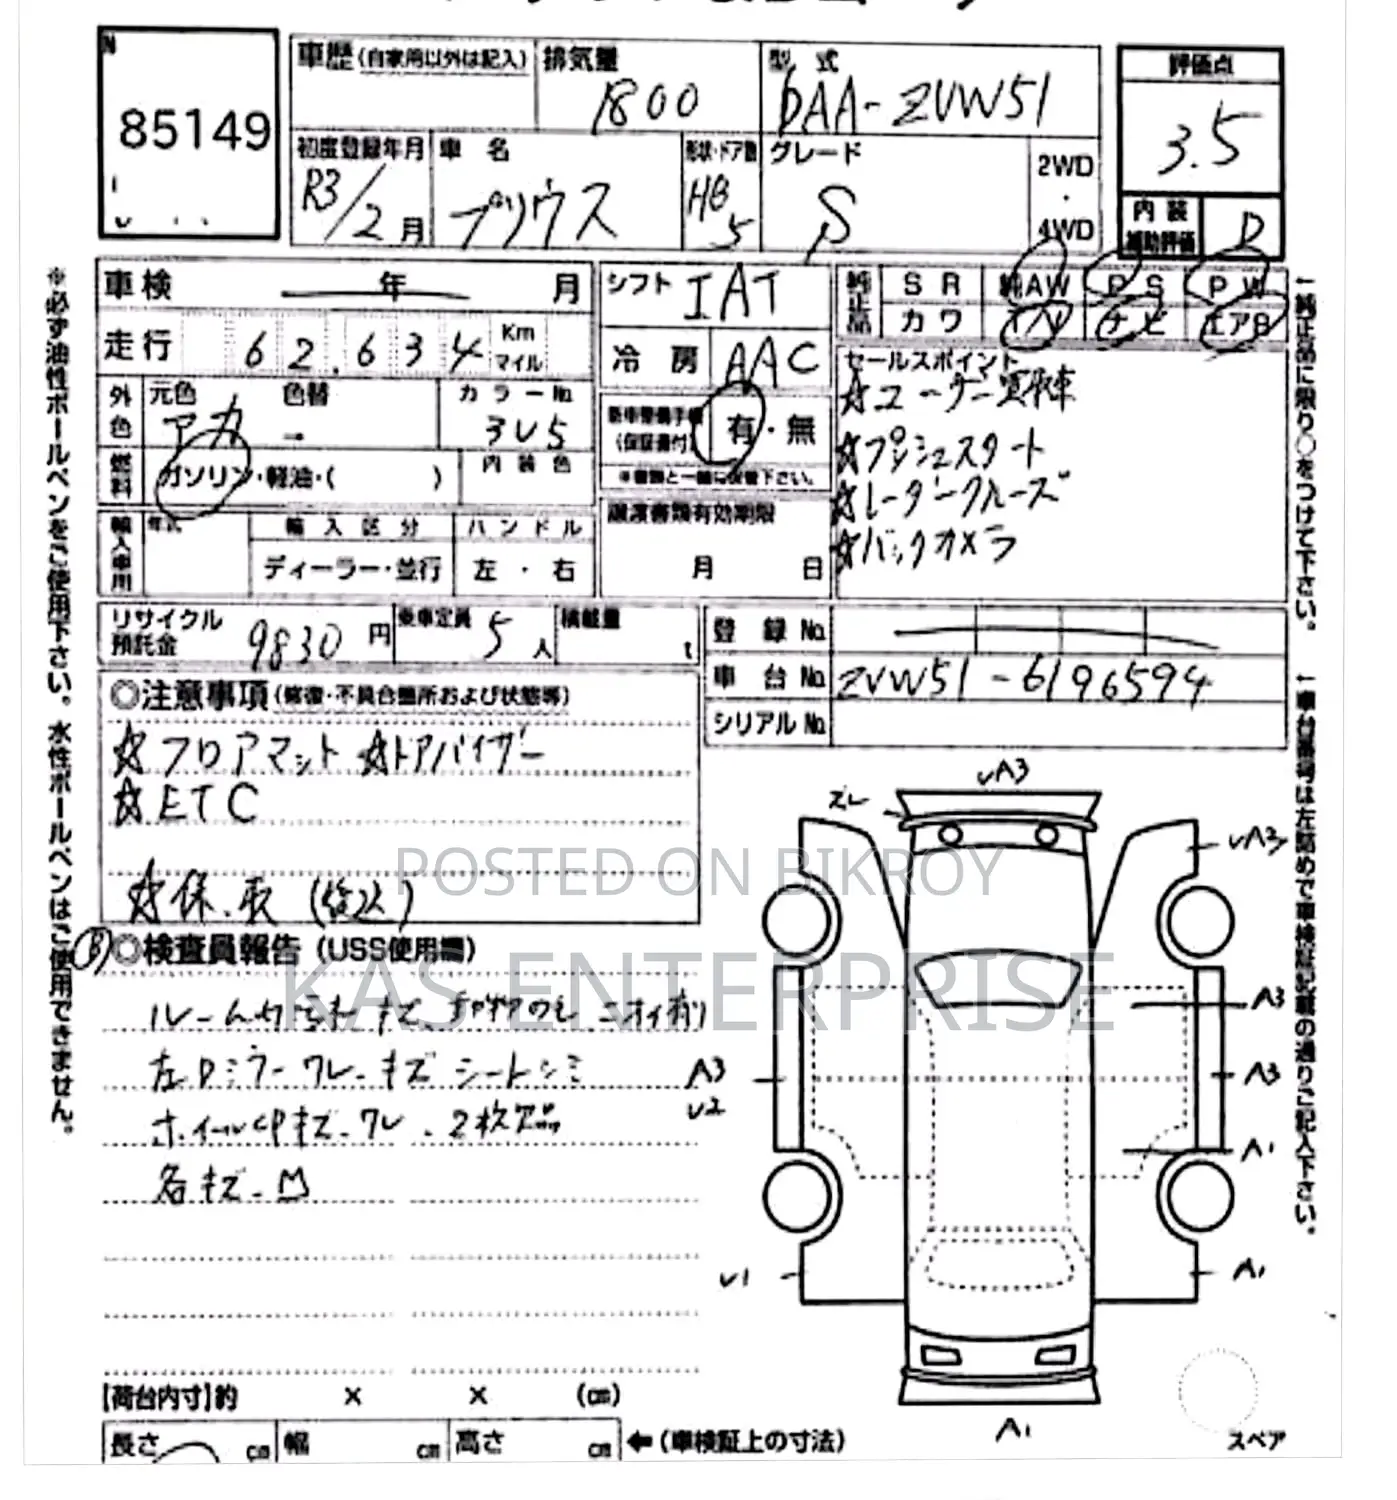 85149
車歴(自家用以外は記入)
排気量
1800
型 式
DAA-ZVW51
評価点
3.5
初度登録年月
R3/2月
車 名
プリウス
形状・ドア数
HB
5
グレード
S
2WD
・
4WD
内 装
補助評価
D
車検 年 月
走行 62,634 Km
マイル
外色
元色 色替
アカ
カラーNo.
3U5
燃料
ガソリン・軽油・( )
内装色
輸入車用
年式
輸入区分
ディーラー・並行
ハンドル
左・右
シフト IAT
冷房 AAC
新車整備手帳
(保証書付)
有・無
※書類と一緒に保管下さい。
譲渡書類有効期限
月 日
純正品
SR 純AW PS PW
カワ TV ナビ エアB
セールスポイント
☆ユーザー買取車
☆プシュスタート
☆レーダークルーズ
☆バックカメラ
リサイクル
預託金
9830円
乗車定員
5人
積載量
t
登録No.
車台No. ZVW51-6196594
シリアルNo.
◎注意事項(修復・不具合箇所および状態等)
☆フロアマット ☆ドアバイザー
☆ETC
☆保.取(後送)
B
◎検査員報告(USS使用欄)
左Dミラーワレ・キズ シートシミ
各キズ・凹
【荷台内寸】約 × × (cm)
長さ cm 幅 cm 高さ cm ←(車検証上の寸法)
UA3
ズレ
UA3
A3
A3
U2
A3
A1
U1
A1
A1
スペア
※必ず油性ボールペンをご使用下さい。水性ボールペンはご使用できません。
↑純正品に限り○をつけて下さい。
↑車台番号は左詰めで車検証記載の通りご記入下さい。
POSTED ON BIKROY
KAS ENTERPRISE